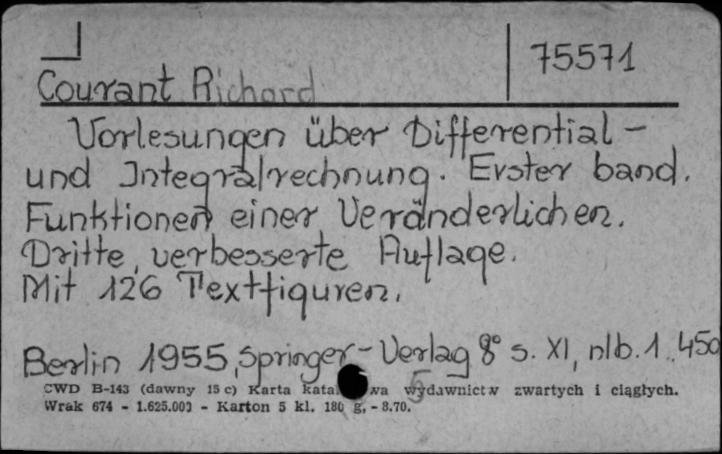 75571
Courant Richard
Vorlesungen über Differential-
und Integralrechnung. Erster band.
Funktionen einer Veränderlichen.
Dritte, verbesserte Auflage.
Mit 126 Textfiguren.
Berlin 1955, Springer-Verlag 8° s. XI, nlb. 1, 450
CWD B-143 (dawny 15 c) Karta wydawnictw zwartych i ciągłych.
Wrak 674 - 1.625.000 - Karton 5 kl. 180 g. - 8.70.